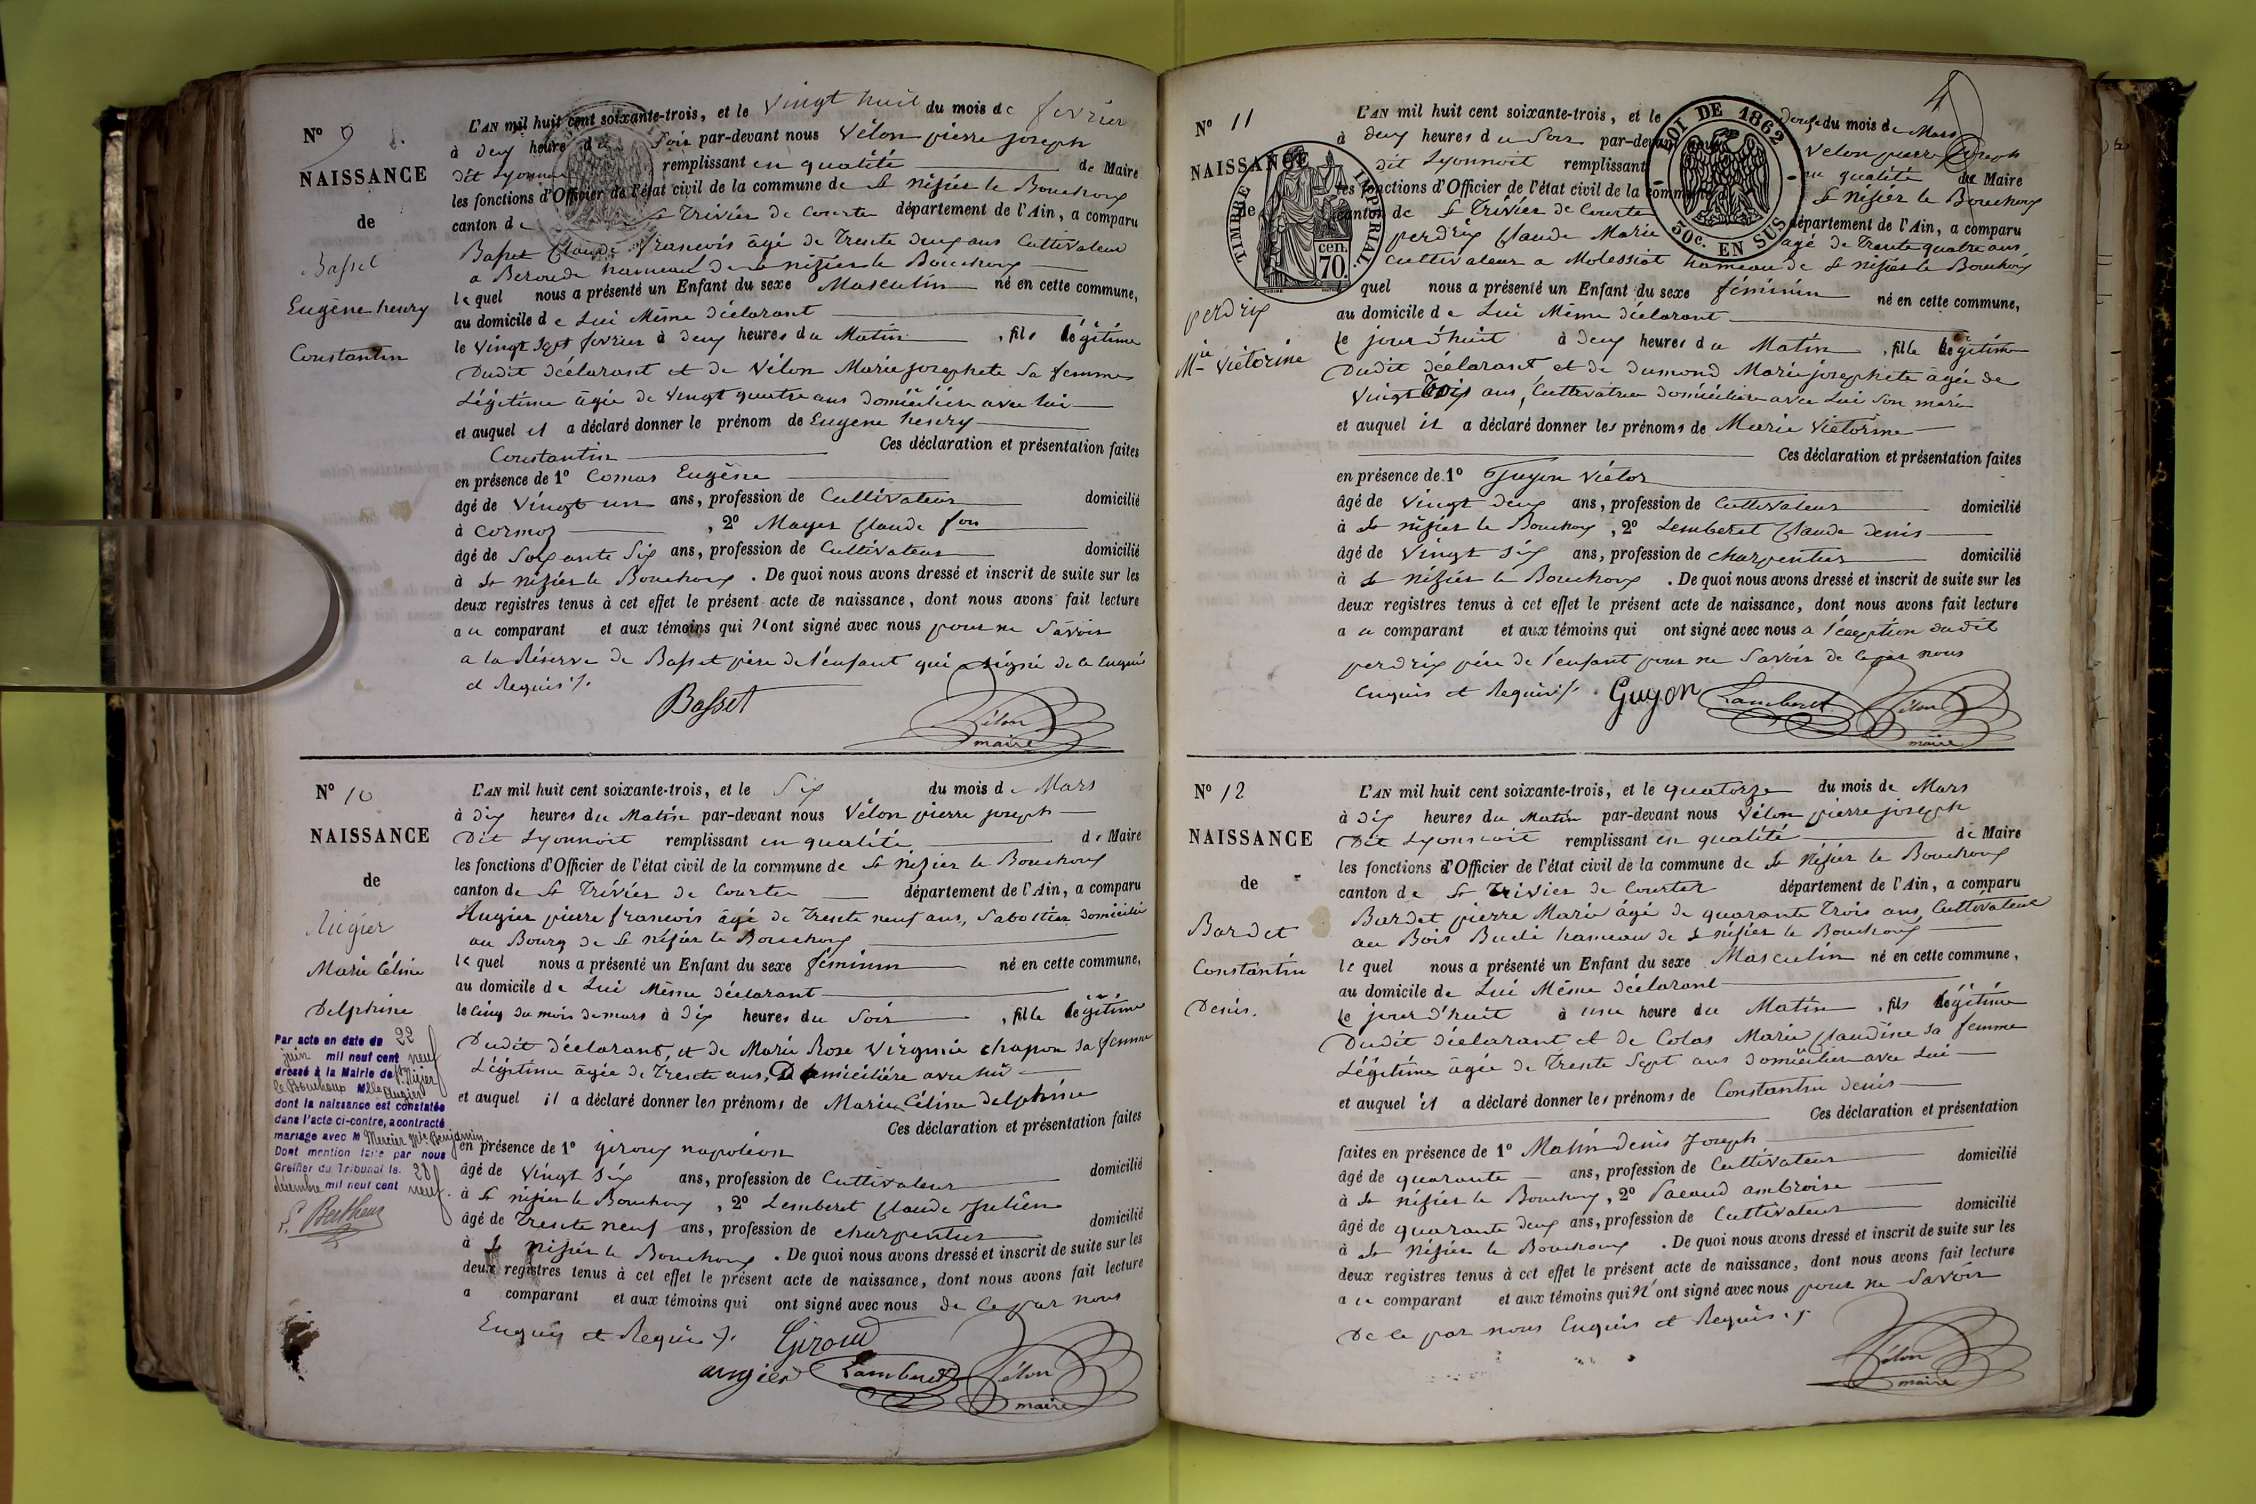 N° 9
NAISSANCE
de
Basset
Eugène henry
Constantin
L'AN mil huit cent soixante-trois, et le vingt huit du mois de fevrier
à deux heures du Soir par-devant nous Vélon pierre joseph
dit Lyonnoit remplissant en qualité de Maire
les fonctions d'Officier de l'état civil de la commune de St Nizier le Bouchoux
canton de St Trivier de Courte département de l'Ain, a comparu
Basset Claude francois âgé de Trente deux ans Cultivateur
a Beroude hameau de St nizier le Bouchoux
le quel nous a présenté un Enfant du sexe Masculin né en cette commune,
au domicile de Lui Même déclarant
le Vingt Sept fevrier à deux heures du Matin, fils légitime
Dudit déclarant et de Vélon Marie josephete Sa femme
Légitime âgée de Vingt quatre ans domicilière avec lui
et auquel il a déclaré donner le prénom de Eugene henry
Constantin Ces déclaration et présentation faites
en présence de 1° Comas Eugène
âgé de Vingt un ans, profession de Cultivateur domicilié
à Cormoz, 2° Mayer Claude fois
âgé de Soixante Six ans, profession de Cultivateur domicilié
à St nizier le Bouchoux. De quoi nous avons dressé et inscrit de suite sur les
deux registres tenus à cet effet le présent acte de naissance, dont nous avons fait lecture
au comparant et aux témoins qui n'ont signé avec nous pour ne Savoir
a la Réserve de Basset père de l'enfant qui a signé de ce Enquis
et Requis ./.
Basset Vélon
maire
N° 10
NAISSANCE
de
Augier
Marie Céline
Delphine
Par acte en date de 22
juin mil neuf cent neuf
dressé à la Mairie de St Nizier
le Bouchoux Mlle Augier
dont la naissance est constatée
dans l'acte ci-contre, a contracté
mariage avec M Mercier Benjamin
Dont mention faite par nous
Greffier du Tribunal le 28
décembre mil neuf cent neuf.
L'AN mil huit cent soixante-trois, et le Six du mois de Mars
à dix heures du Matin par-devant nous Vélon pierre joseph
Dit Lyonnoit remplissant en qualité de Maire
les fonctions d'Officier de l'état civil de la commune de St Nizier le Bouchoux
canton de St Trivier de Courte département de l'Ain, a comparu
Augier pierre francois âgé de Trente neuf ans, Sabottier domicilié
au Bourg de St Nizier le Bouchoux
le quel nous a présenté un Enfant du sexe féminin né en cette commune,
au domicile de Lui Même déclarant
le Cinq du mois de mars à dix heures du Soir, fille légitime
Dudit déclarant, et de Marie Rose Virginie chapon sa femme
Légitime âgée de Trente ans, Domicilière avec lui
et auquel il a déclaré donner les prénoms de Marie Céline delphine
Ces déclaration et présentation faites
en présence de 1° giroux napoléon
âgé de Vingt Six ans, profession de Cultivateur domicilié
à St nizier le Bouchoux, 2° Lemberet Claude Julien
âgé de Trente neuf ans, profession de charpentier domicilié
à St nizier le Bouchoux. De quoi nous avons dressé et inscrit de suite sur les
deux registres tenus à cet effet le présent acte de naissance, dont nous avons fait lecture
a comparant et aux témoins qui ont signé avec nous de ce par nous
Enquis et Requis ./.
Giroud
augier Lamberet Vélon
maire
N° 11
NAISSANCE
de
TIMBRE IMPÉRIAL
cen. 70.
LOI DE 1862
50c. EN SUS
perdrix
Mie Victorine
L'AN mil huit cent soixante-trois, et le Douze du mois de Mars
à deux heures du Soir par-devant nous Vélon pierre Joseph
dit Lyonnoit remplissant en qualité de Maire
les fonctions d'Officier de l'état civil de la commune de St Nizier le Bouchoux
canton de St Trivier de Courte département de l'Ain, a comparu
perdrix Claude Marie âgé de Trente quatre ans
Cultivateur a Molessiat hameau de St nizier le Bouchoux
quel nous a présenté un Enfant du sexe féminin né en cette commune,
au domicile de Lui Même déclarant
le jour d'huit à deux heures du Matin, fille légitime
Dudit déclarant et de dumond Marie josephete âgée de
Vingt Trois ans, Cultivatrice domicilière avec Lui Son mari
et auquel il a déclaré donner les prénoms de Marie Victorine
Ces déclaration et présentation faites
en présence de 1° Guyon Victor
âgé de Vingt deux ans, profession de Cultivateur domicilié
à St nizier le Bouchoux, 2° Lemberet Claude denis
âgé de Vingt Six ans, profession de charpentier domicilié
à St nizier le Bouchoux. De quoi nous avons dressé et inscrit de suite sur les
deux registres tenus à cet effet le présent acte de naissance, dont nous avons fait lecture
au comparant et aux témoins qui ont signé avec nous a l'éception dudit
perdrix père de l'enfant pour ne Savoir de ce par nous
Enquis et Requis ./. Guyon Lamberet Vélon
maire
N° 12
NAISSANCE
de
Bardet
Constantin
Denis.
L'AN mil huit cent soixante-trois, et le quatorze du mois de Mars
à dix heures du Matin par-devant nous Vélon pierre joseph
Dit Lyonnoit remplissant en qualité de Maire
les fonctions d'Officier de l'état civil de la commune de St Nizier le Bouchoux
canton de St Trivier de Courtes département de l'Ain, a comparu
Bardet pierre Marie âgé de quarante Trois ans, Cultivateur
au Bois Buclé hameau de St nizier le Bouchoux
le quel nous a présenté un Enfant du sexe Masculin né en cette commune,
au domicile de Lui Même déclarant
le jour d'huit à une heure du Matin, fils légitime
Dudit déclarant et de Colas Marie Claudine sa femme
Légitime âgée de Trente Sept ans domicilière avec Lui
et auquel il a déclaré donner les prénoms de Constantin denis
Ces déclaration et présentation
faites en présence de 1° Matin Denis Joseph
âgé de quarante ans, profession de Cultivateur domicilié
à St nizier le Bouchoux, 2° Pacaud ambroise
âgé de quarante deux ans, profession de Cultivateur domicilié
à St Nizier le Bouchoux. De quoi nous avons dressé et inscrit de suite sur les
deux registres tenus à cet effet le présent acte de naissance, dont nous avons fait lecture
au comparant et aux témoins qui n'ont signé avec nous pour ne Savoir
De ce par nous Enquis et Requis ./.
Vélon
maire